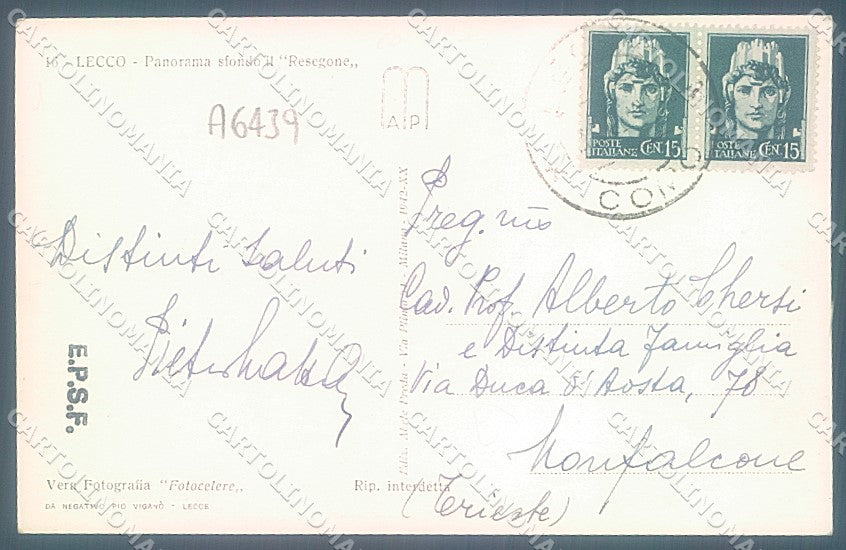 16 - LECCO - Panorama sfondo il "Resegone,,
A6439
AP
POSTE ITALIANE CENT 15
POSTE ITALIANE CENT 15
COM
Preg.mo
Distinti saluti
Cav. Prof. Alberto Chersi
e Distinta Famiglia
Via Duca d'Aosta, 78
Monfalcone
(Trieste)
E.P.S.F.
Milano - 1942-XX
Vera Fotografia "Fotocelere,,
Rip. interdetta
DA NEGATIVO PIO VIGANÒ - LECCE
CARTOLINOMANIA